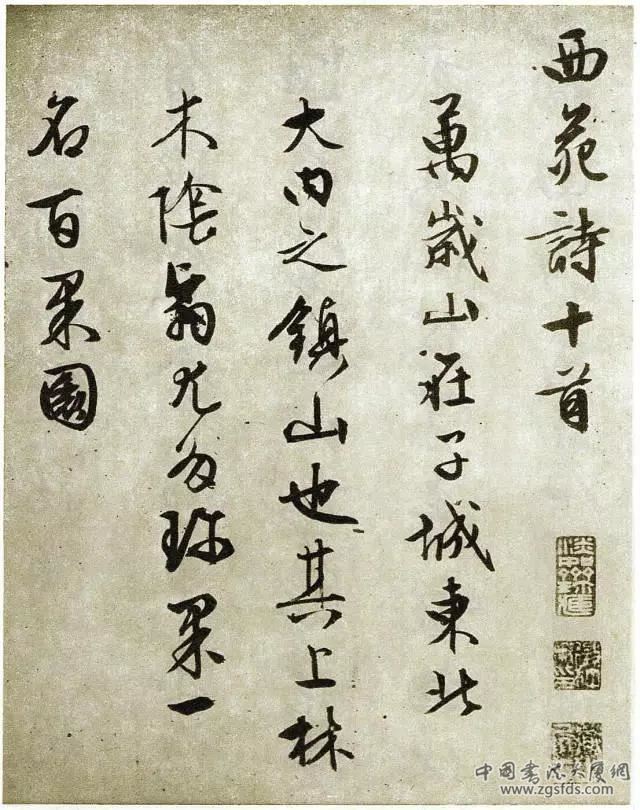 西苑詩十首
萬歲山在子城東北
大内之鎮山也其上林
木陰翳尤多珍果一
名百果園
中国书法大厦網
www.zgsfds.com